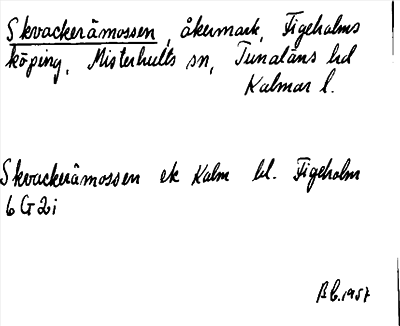 Skvackerämossen, åkermark, Figeholms
köping, Misterhults sn, Tunaläns hd
Kalmar l.
Skvackerämossen ek Kalm bl. Figeholm
6 G 2 i
1957